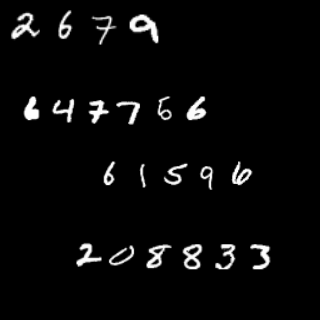 2679
647756
61596
208833